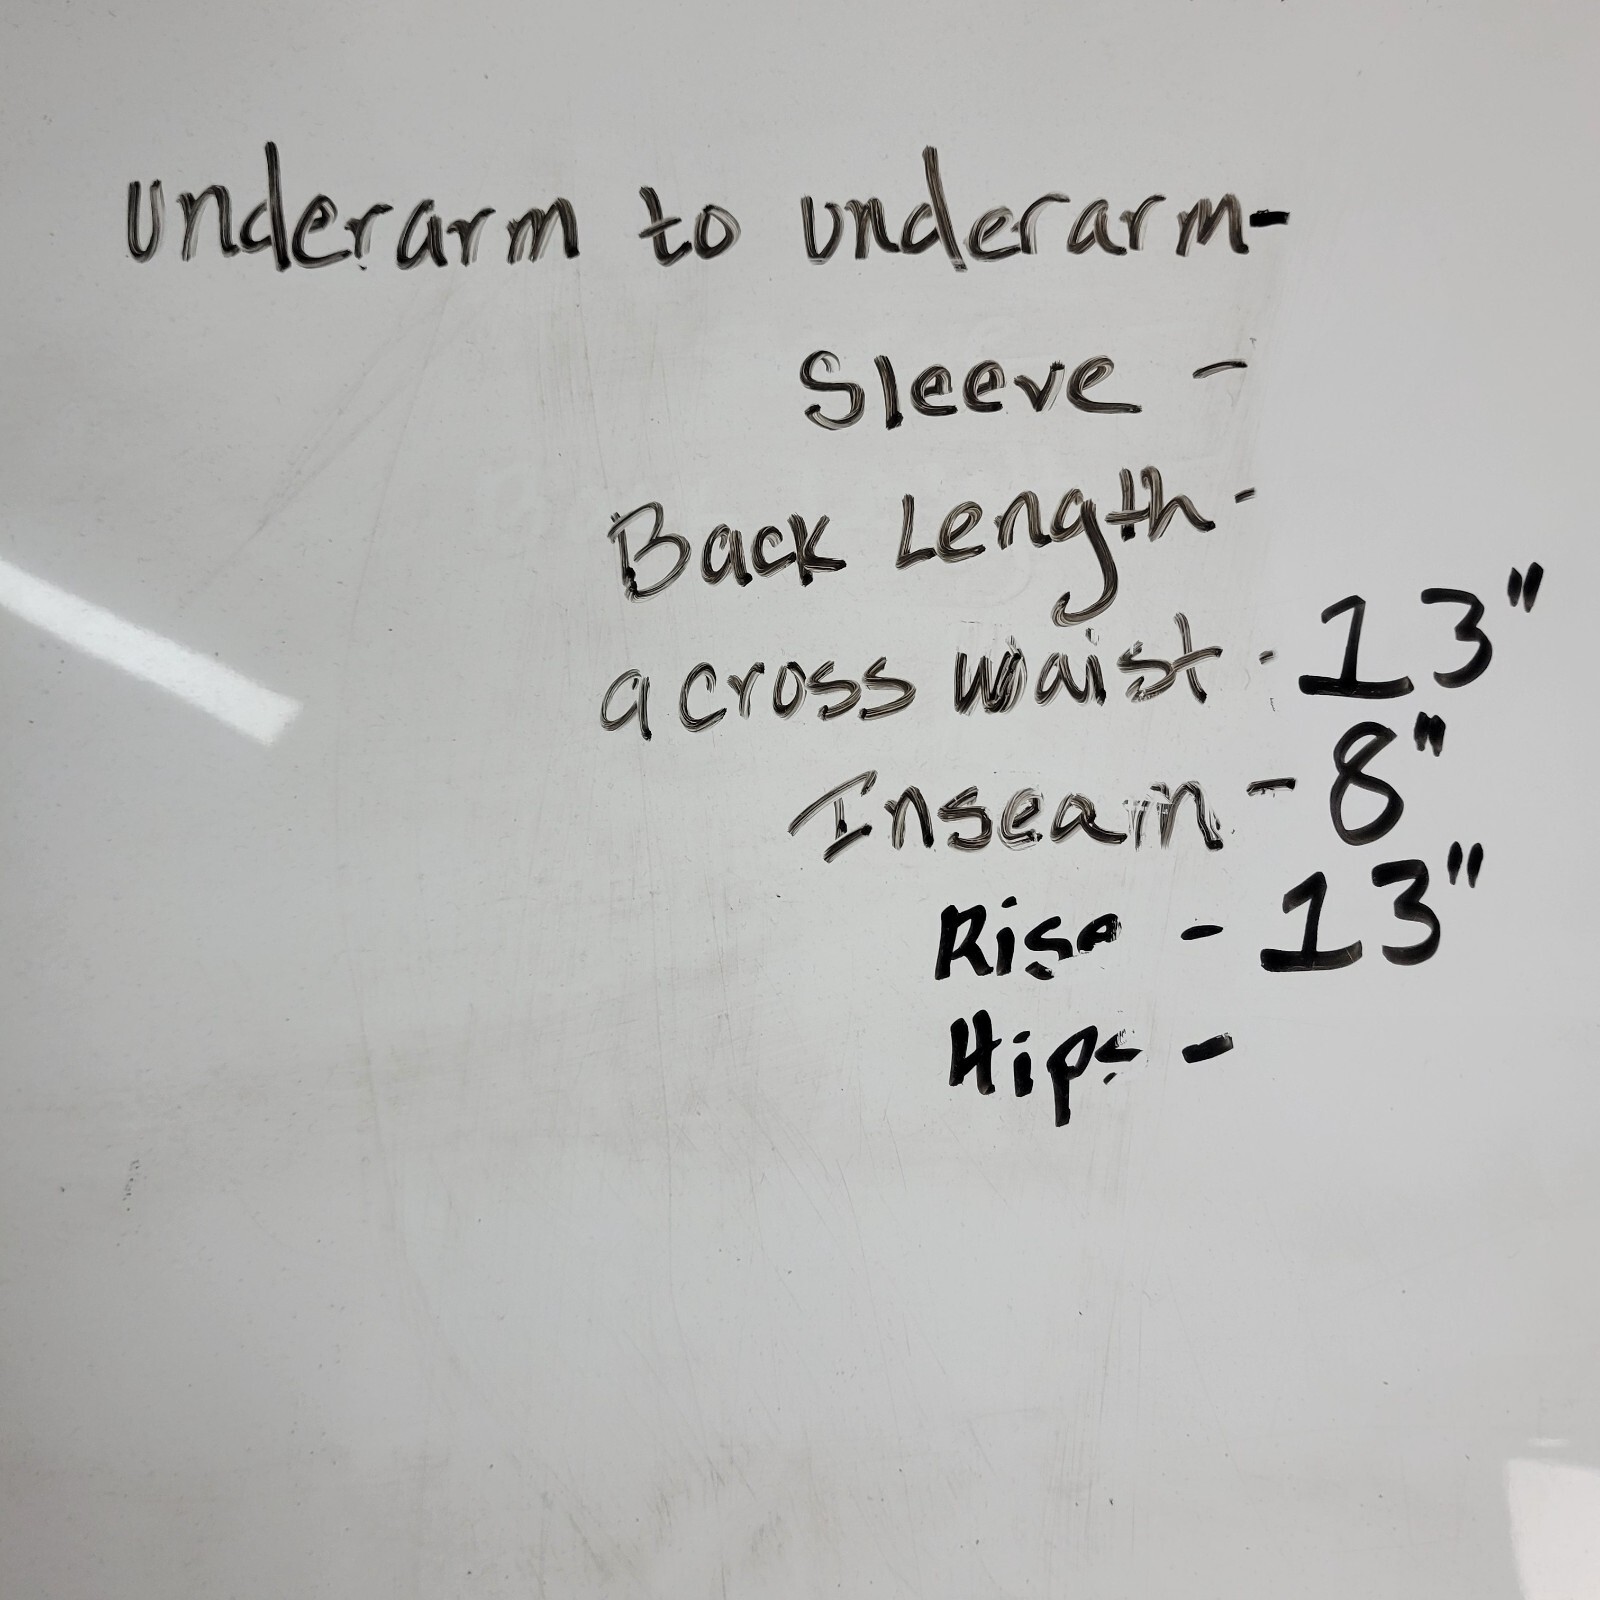 underarm to underarm-
Sleeve -
Back Length-
across waist - 13"
Inseam - 8"
Rise - 13"
Hips -